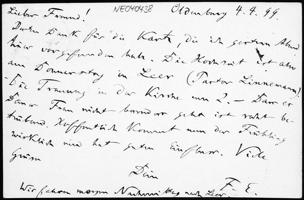 Lieber Freund! NE040438 Oldenburg 4.4.99.
Vielen Dank für die Karte, die ich gestern Abend
hier vorgefunden habe. Die Hochzeit ist also
am Donnerstag in Leer (Pastor Linnemann)
Die Trauung in der Kirche um 2. – Dass es
Deiner Frau nicht besonders geht ist recht be-
trübend. Hoffentlich kommt nun der Frühling
wirklich und hat guten Einfluss. Viele
Grüsse
Dein
F. E.
Wir fahren morgen Nachmittag nach Leer.